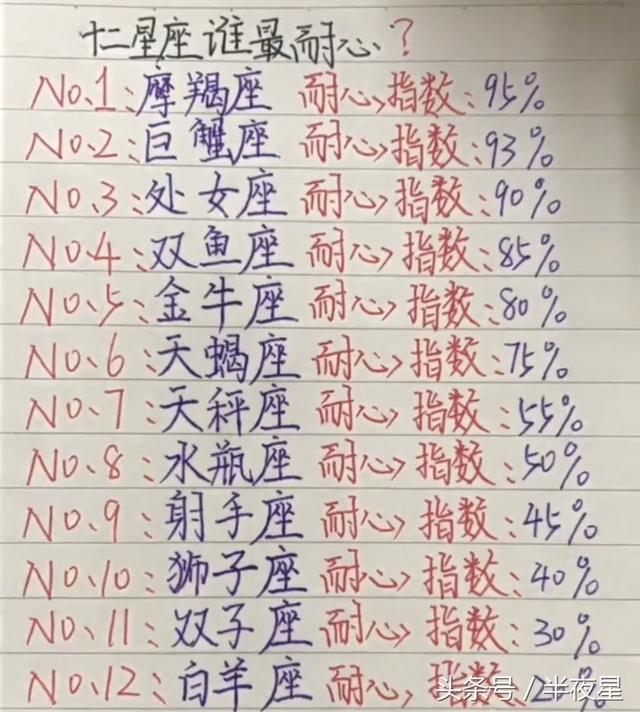 十二星座谁最耐心?
No.1:摩羯座 耐心指数:95%
No.2:巨蟹座 耐心指数:93%
No.3:处女座 耐心指数:90%
No.4:双鱼座 耐心指数:85%
No.5:金牛座 耐心指数:80%
No.6:天蝎座 耐心指数:75%
No.7:天秤座 耐心指数:55%
No.8:水瓶座 耐心指数:50%
No.9:射手座 耐心指数:45%
No.10:狮子座 耐心指数:40%
No.11:双子座 耐心指数:30%
No.12:白羊座 耐心指数:
头条号/半夜星